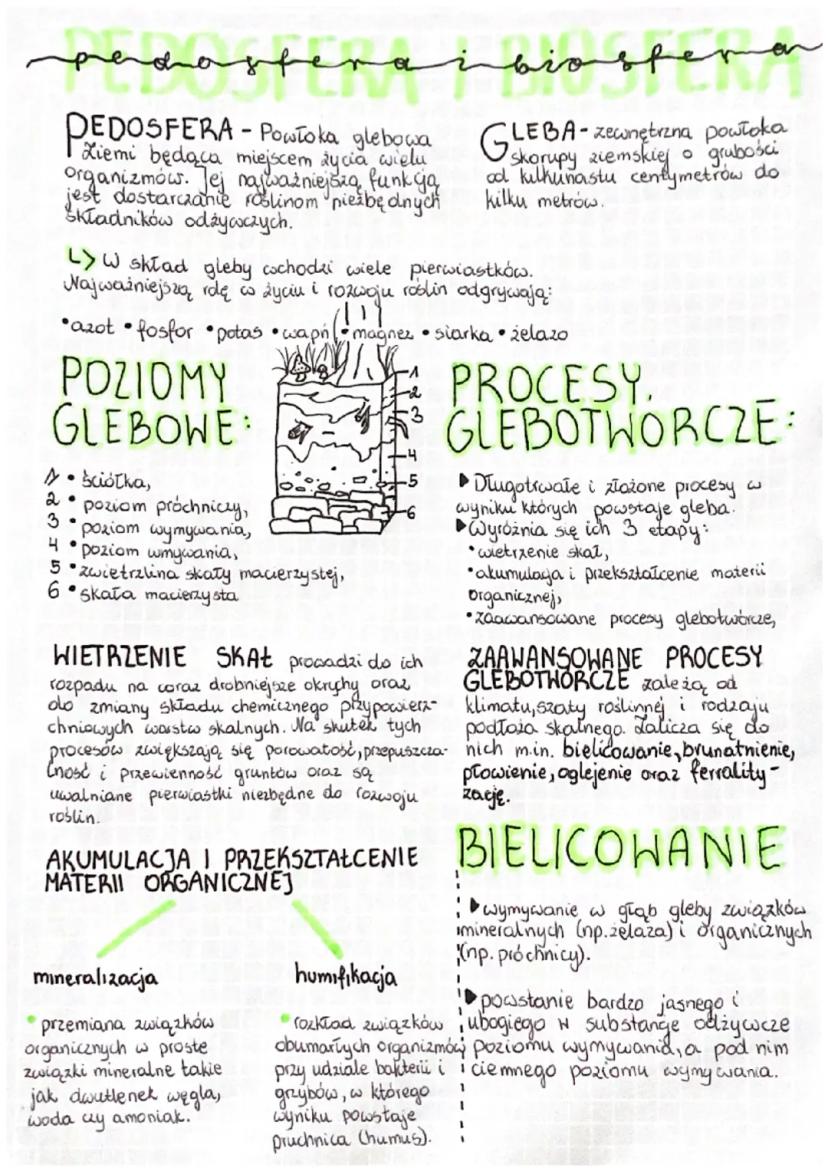 PEDOSFERA I BIOSFERA
pedosfera i biosfera
PEDOSFERA - Powłoka glebowa
Ziemi będąca miejscem życia wielu
organizmów. Jej najważniejszą funkcją
jest dostarczanie roślinom niezbędnych
składników odżywczych.
GLEBA - zewnętrzna powłoka
skorupy ziemskiej o grubości
od kilkunastu centymetrów do
kilku metrów.
↳ W skład gleby wchodzi wiele pierwiastków.
Najważniejszą rolę w życiu i rozwoju roślin odgrywają:
•azot •fosfor •potas •wapń •magnez •siarka •żelazo
POZIOMY
GLEBOWE:
1 • ściółka,
2 • poziom próchniczy,
3 • poziom wymywania,
4 • poziom wmywania,
5 • zwietrzlina skały macierzystej,
6 • skała macierzysta
1
2
3
4
5
6
PROCESY.
GLEBOTWÓRCZE:
▶ Długotrwałe i złożone procesy w
wyniku których powstaje gleba.
▶ Wyróżnia się ich 3 etapy:
• wietrzenie skał,
• akumulacja i przekształcenie materii
organicznej,
• zaawansowane procesy glebotwórcze,
WIETRZENIE SKAŁ prowadzi do ich
rozpadu na coraz drobniejsze okruchy oraz
do zmiany składu chemicznego przypowierz-
chniowych warstw skalnych. Na skutek tych
procesów zwiększają się porowatość, przepuszcza-
lność i przewienność gruntów oraz są
uwalniane pierwiastki niezbędne do rozwoju
roślin.
ZAAWANSOWANE PROCESY
GLEBOTWÓRCZE zależą od
klimatu, szaty roślinnej i rodzaju
podłoża skalnego. Zalicza się do
nich m.in. bielicowanie, brunatnienie,
płowienie, oglejenie oraz ferrality-
zację.
AKUMULACJA I PRZEKSZTAŁCENIE
MATERII ORGANICZNEJ
mineralizacja
• przemiana związków
organicznych w proste
związki mineralne takie
jak dwutlenek węgla,
woda czy amoniak.
humifikacja
• rozkład związków
obumarłych organizmów
przy udziale bakterii i
grzybów, w którego
wyniku powstaje
pruchnica (humus).
BIELICOWANIE
▶ wymywanie w głąb gleby związków
mineralnych (np. żelaza) i organicznych
(np. próchnicy).
▶ powstanie bardzo jasnego i
ubogiego w substancje odżywcze
poziomu wymywania, a pod nim
ciemnego poziomu wymywania.